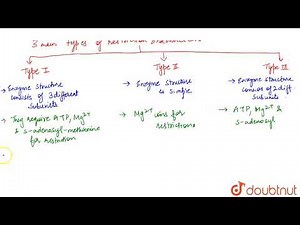 3 main types of restriction endonucleases
Type I
Type II
Type III
→ Enzyme structure
consists of 3 different
subunits
→ Enzyme structure
is simple
→ Enzyme structure
consists of 2 diff
subunits
→ They require ATP, Mg2+
& s-adenosyl-methionine
for restriction
→ Mg2+ ions for
restriction
→ ATP, Mg2+ &
s-adenosyl
doubtnut